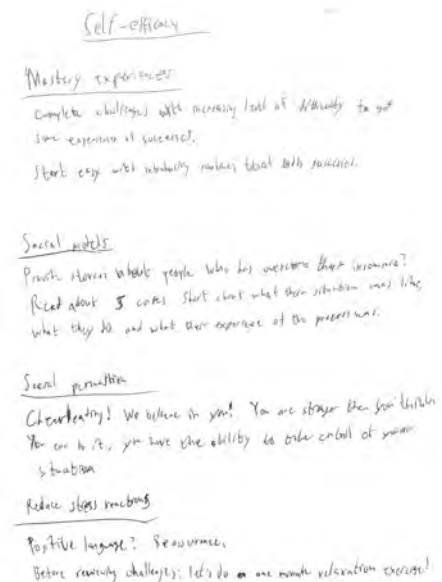 Self-efficacy
Mastery experiences
Complete challenges with increasing level of difficulty to get
some experience of successes.
Start easy with introducing
Social models
Provide stories about people who has overcome their insomnia?
Read about 5 cases. Short about what their situation was like,
what they did and what their experience of the process was.
Social persuasion
Cheerleading! We believe in you! You are stronger than you think.
You can do it, you have the ability to take control of your
situation
Reduce stress reactions
Positive language? Reassurance.
Before reviewing challenges: let's do a one minute relaxation exercise!